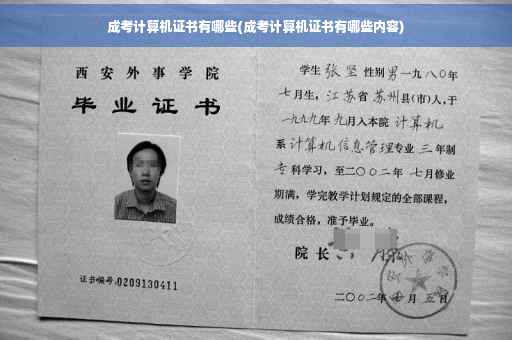 成考计算机证书有哪些(成考计算机证书有哪些内容)
西安外事学院
毕业证书
证书编号:0209130411
学生 张坚 性别 男 一九八〇年
七月生，江苏省 苏州县(市)人,于
一九九九年 九月入本院 计算机
系 计算机信息管理专业 三 年制
专科学习，至二〇〇二年 七月修业
期满，学完教学计划规定的全部课程，
成绩合格，准予毕业。
院长
二〇〇二年 月五日